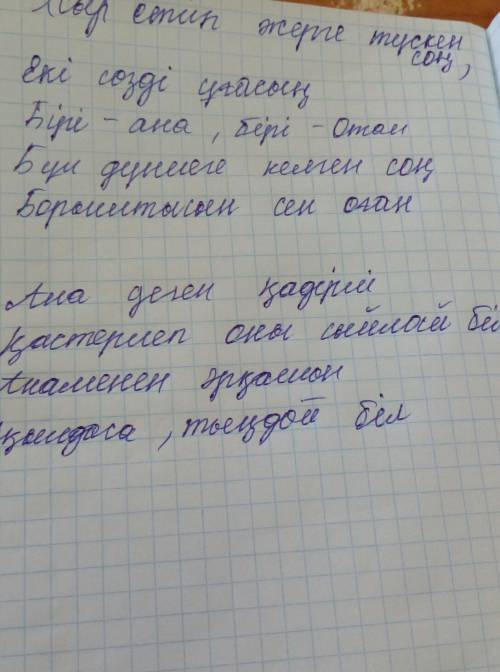 етип жерге тускен
соң,
Екі сөзді ұғасың
Бірі - ана, бірі - Отан
Бұл дүниеге келген соң
Борыштысын сен оған
Ана деген қадірлі
Қастерлеп оны сыйлай біл
Анаменен әрқашан
ақылдаса, тыңдай біл